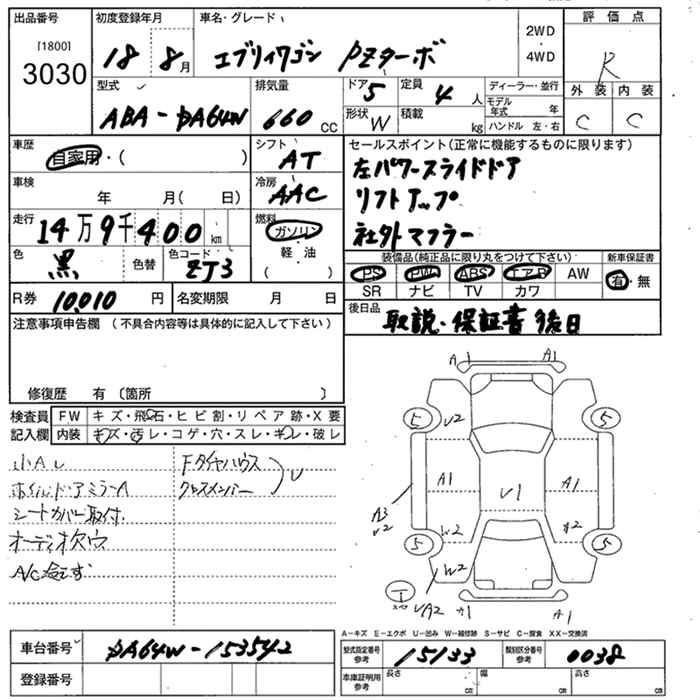 出品番号 初度登録年月 車名・グレード 2WD・4WD 評価点
[1800]
3030
18 年 8 月 エブリイワゴン PZターボ
R
型式 排気量 ドア 5 定員 4 人 ディーラー・並行 外装 内装
ABA-DA64W 660 CC 形状 W 積載 kg モデル年式 年
ハンドル 左・右 C C
車歴 自家用・( ) シフト AT セールスポイント(正常に機能するものに限ります)
左パワースライドドア
車検 年 月( 日) 冷房 AAC リフトアップ
走行 14万9千400 km 燃料 ガソリン 社外マフラー
軽・油
( )
色 黒 色替 色コード ZJ3 装備品(純正品に限り丸をつけて下さい) 新車保証書
PS PW ABS エアB AW 有・無
SR ナビ TV カワ
R券 10,010 円 名変期限 月 日 後日品
取説・保証書 後日
注意事項申告欄 (不具合内容等は具体的に記入して下さい)
修復歴 有 〔箇所 〕
検査員 FW キズ・飛石・ヒビ割・リペア跡・X要
記入欄 内装 キズ・汚レ・コゲ・穴・スレ・キレ・破レ
小AU
ホイル、ドアミラーA
シートカバー取付
オーディオ欠品
Fタイヤハウス
クロスメンバー
U
A1 A1
5 U2 5
A1 U1 A1
A3
U2
W2
5 W2 5
UA2 A1 A1
A-キズ E-エクボ U-凹み W-補修跡 S-サビ C-腐食 XX-交換済
車台番号 DA64W-153542
登録番号
型式指定番号 参考 15133 類別区分番号 参考 0038
車庫証明用 参考 長さ cm 幅 cm 高さ cm